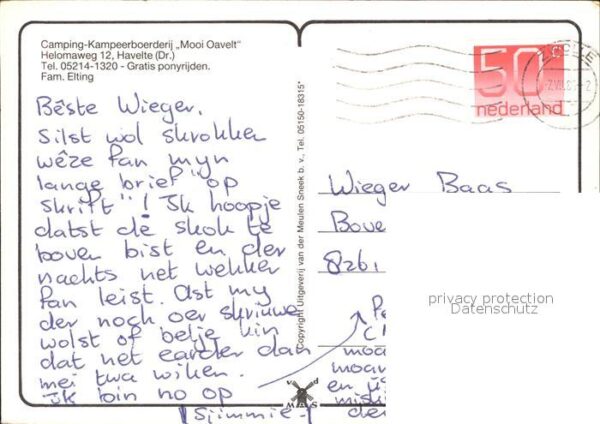 Camping-Kampeerboerderij „Mooi Oavelt"
Helomaweg 12, Havelte (Dr.)
Tel. 05214-1320 - Gratis ponyrijden.
Fam. Elting
Bêste Wieger,
Silst wol skrokken
wêze fan myn
lange brief "op
skrift"! Ik hoopje
datst dê skok te
boven bist en der
nachts net wekker
fan leist. Ast my
der noch oer skriuwe
wolst of belje kin
dat net earder dan
mei twa wiken.
Ik bin no op
Sjimmie-
Copyright Uitgeverij van der Meulen Sneek b.v., Tel. 05150-18315*
v d
M S
50 c
nederland
Wieger Baas
Bove
8261
privacy protection
Datenschutz
moa
moar
en
mis
der